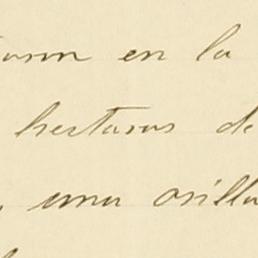 en la
hectaras de
una orilla